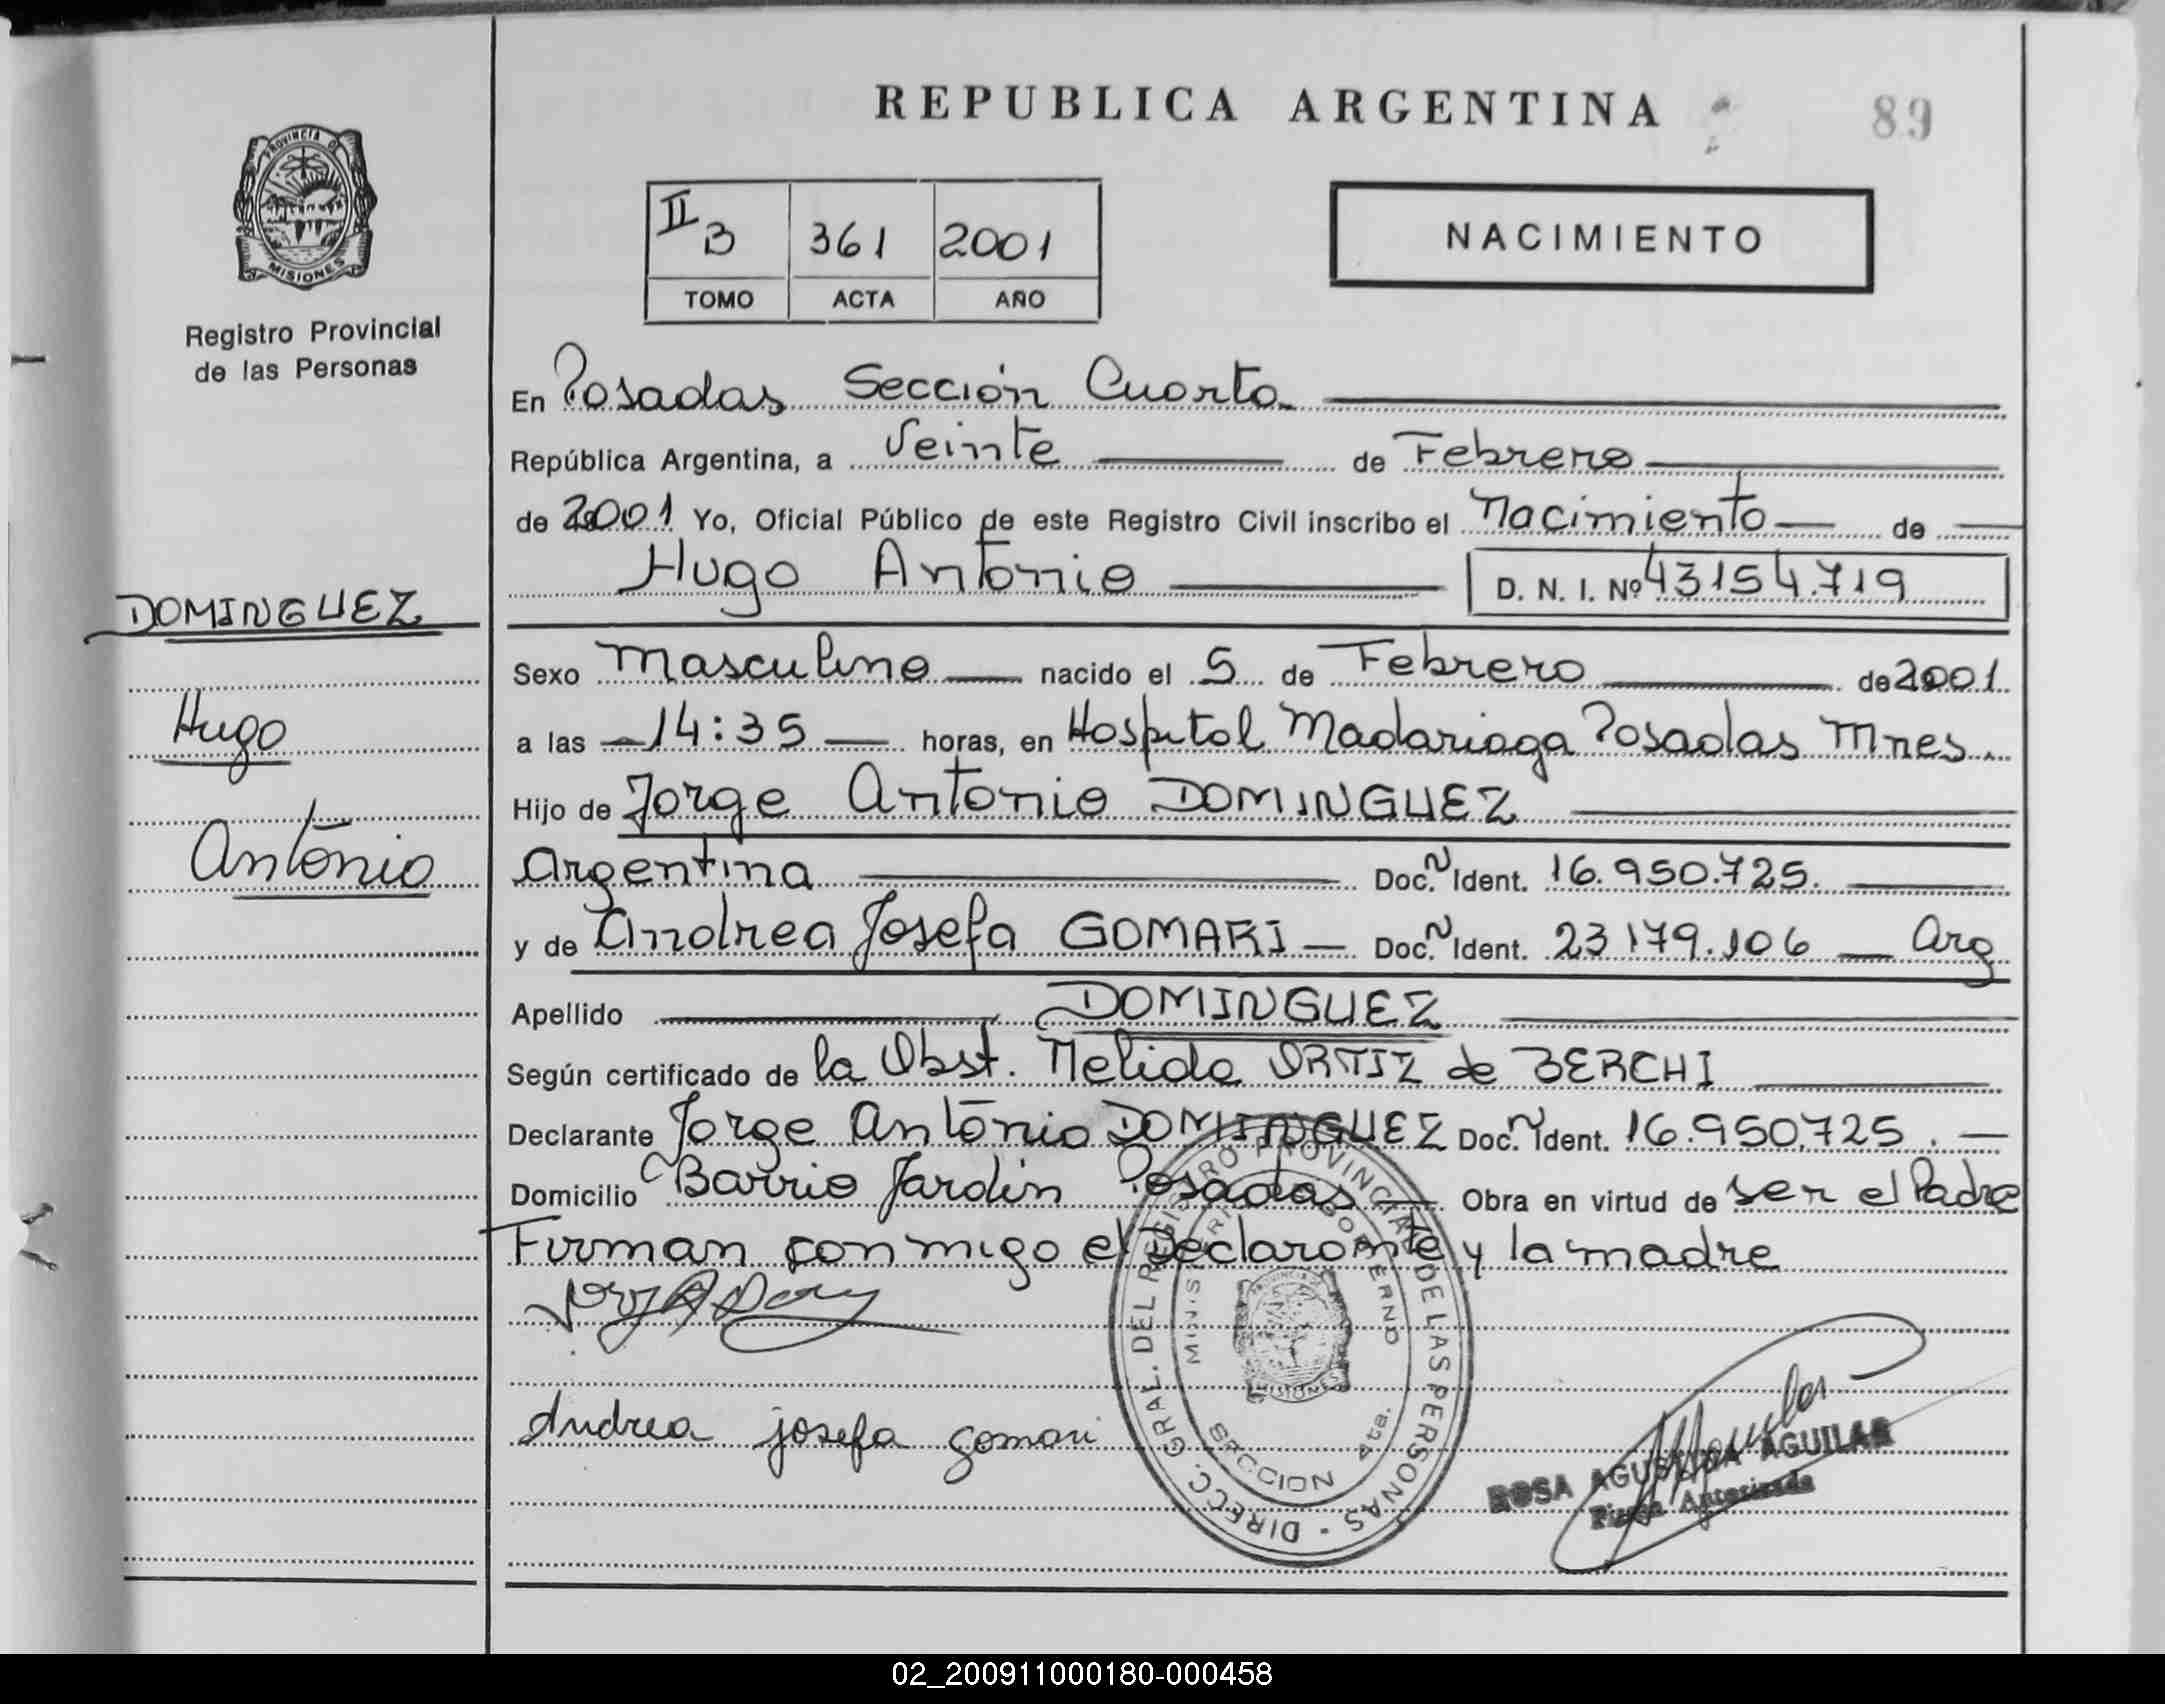 REPUBLICA ARGENTINA
89
PROVINCIA DE
MISIONES
Registro Provincial
de las Personas
II B 361 2001
TOMO ACTA AÑO
NACIMIENTO
En Posadas Sección Cuarta
República Argentina, a Veinte de Febrero
de 2001 Yo, Oficial Público de este Registro Civil inscribo el Nacimiento de
Hugo Antonio D. N. I. Nº 43154.719
DOMINGUEZ
Hugo
Antonio
Sexo Masculino nacido el 5 de Febrero de 2001
a las 14:35 horas, en Hospital Madariaga Posadas Mnes.
Hijo de Jorge Antonio DOMINGUEZ
Argentina Doc. Ident. 16.950.725.
y de Andrea Josefa GOMARI Doc. Ident. 23179.106 Arg
Apellido DOMINGUEZ
Según certificado de la Obst. Nelida ORTIZ de BERCHI
Declarante Jorge Antonio DOMINGUEZ Doc. Ident. 16.950.725.
Domicilio Barrio Jardin Posadas Obra en virtud de ser el Padre
Firman conmigo el Declarante y la madre
Andrea josefa gomari
DIRECC. GRAL. DEL REGISTRO PROVINCIAL DE LAS PERSONAS
MINISTERIO GOBIERNO
MISIONES
SECCION 4ta.
ROSA AGUSTINA AGUILAR
Firma Autorizada
02_200911000180-000458